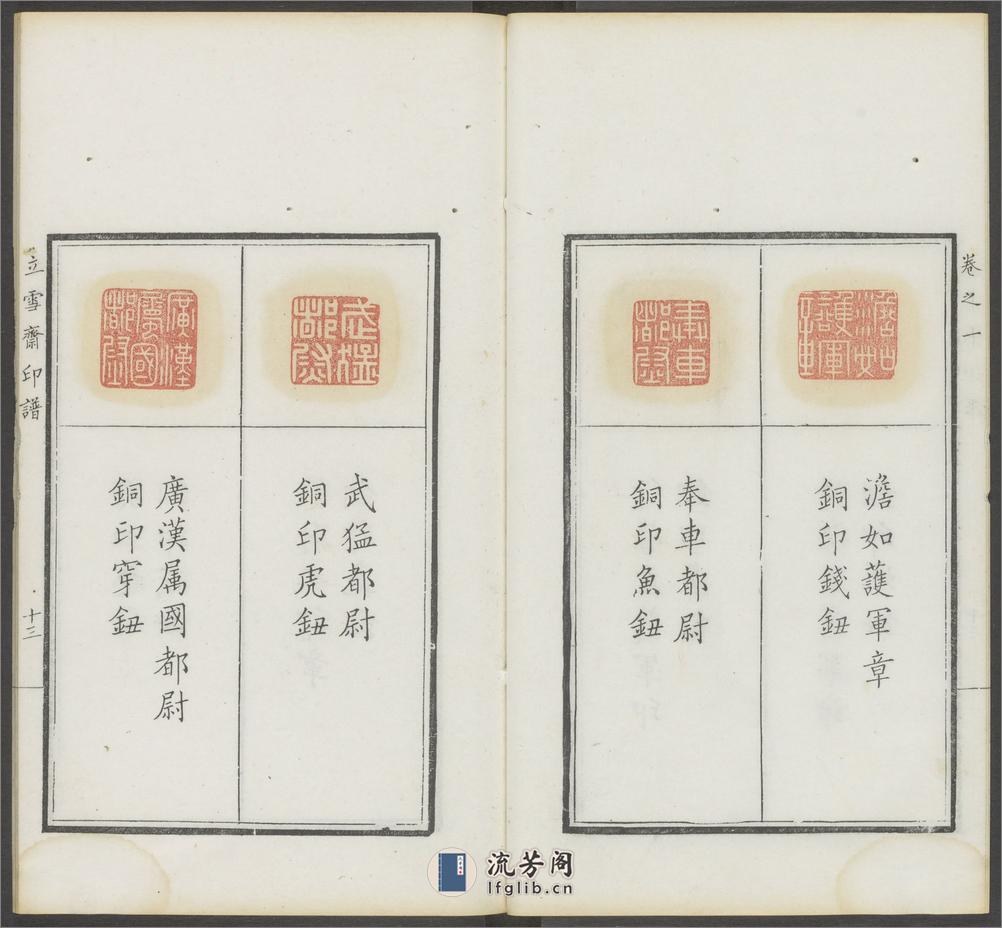 卷之一
澹如護軍章
銅印錢鈕
奉車都尉
銅印魚鈕
武猛都尉
武猛都尉
銅印虎鈕
廣漢属國都尉
銅印穿鈕
立雪齋印譜
十三
流芳阁
lfglib.cn